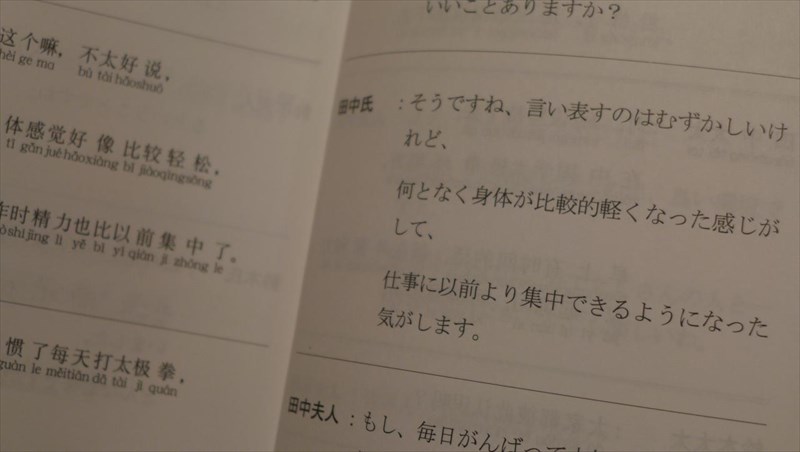 这个嘛，不太好说，
hèi ge ma bú tài hǎoshuō
体感觉好像比较轻松，
tǐ gǎnjuéhǎoxiàng bǐ jiàoqīngsōng
时精力也比以前集中了。
shíjīng lì yě bǐ yǐ qián jí zhōng le
惯了每天打太极拳，
guàn le měitiān dǎ tài jí quán
いいことありますか？
田中氏 ：そうですね、言い表すのはむずかしいけ
れど、
何となく身体が比較的軽くなった感じが
して、
仕事に以前より集中できるようになった
気がします。
田中夫人：もし、毎日がんばって